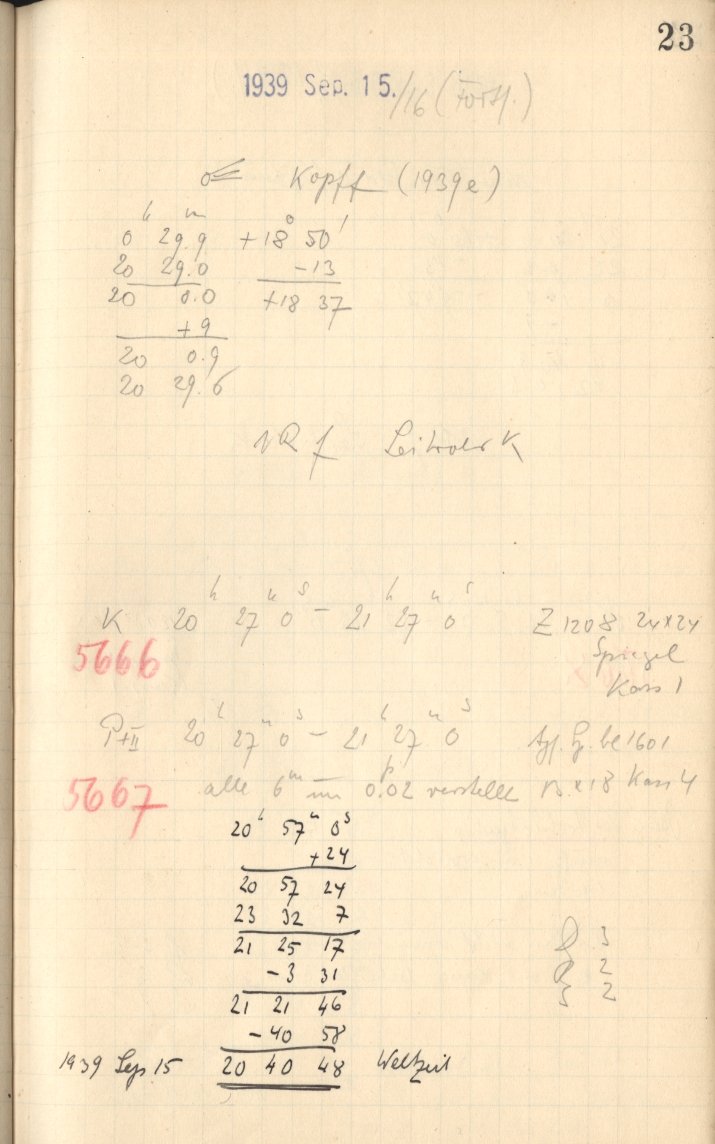 23
1939 Sep. 15./16 (Forts.)
Kopff (1939e)
h m ° '
0 29.9 +18 50
20 29.0 -13
20 0.0 +18 37
+9
20 0.9
20 29.6
Leitrohr K
K 20h 27m 0s - 21h 27m 0s Z 1208 24x24
5666 Spiegel
Kass 1
P+II 20h 27m 0s - 21h 27m 0s Agf. 1601
5667 alle 6m um 0p.02 verstellt 13x18 Kass 4
20h 57m 0s
+24
20 57 24
23 32 7
21 25 17
-3 31
21 21 46
-40 58
1939 Sep 15 20 40 48 Weltzeit
3
2
2